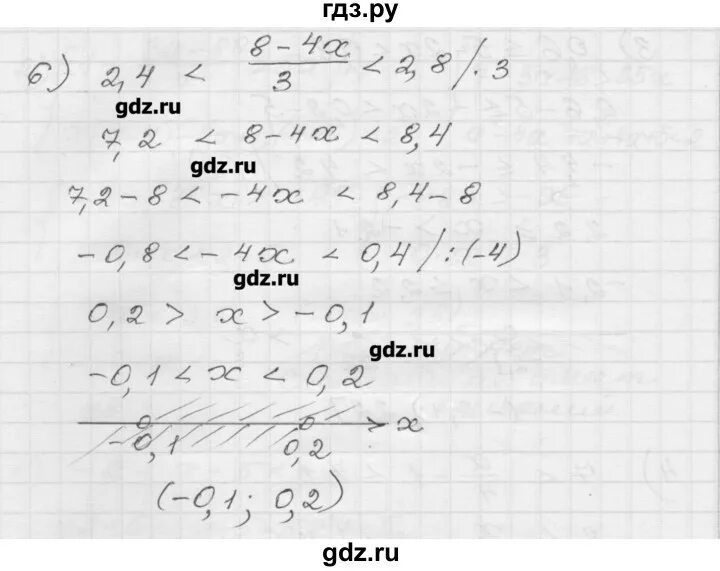 гдз.ру
6) 2,4 < (8 - 4x)/3 < 2,8 / · 3
gdz.ru
7,2 < 8 - 4x < 8,4
gdz.ru
7,2 - 8 < - 4x < 8,4 - 8
- 0,8 < - 4x < 0,4 / : (-4)
gdz.ru
0,2 > x > - 0,1
gdz.ru
- 0,1 < x < 0,2
x
- 0,1 0,2
(- 0,1 ; 0,2)
gdz.ru